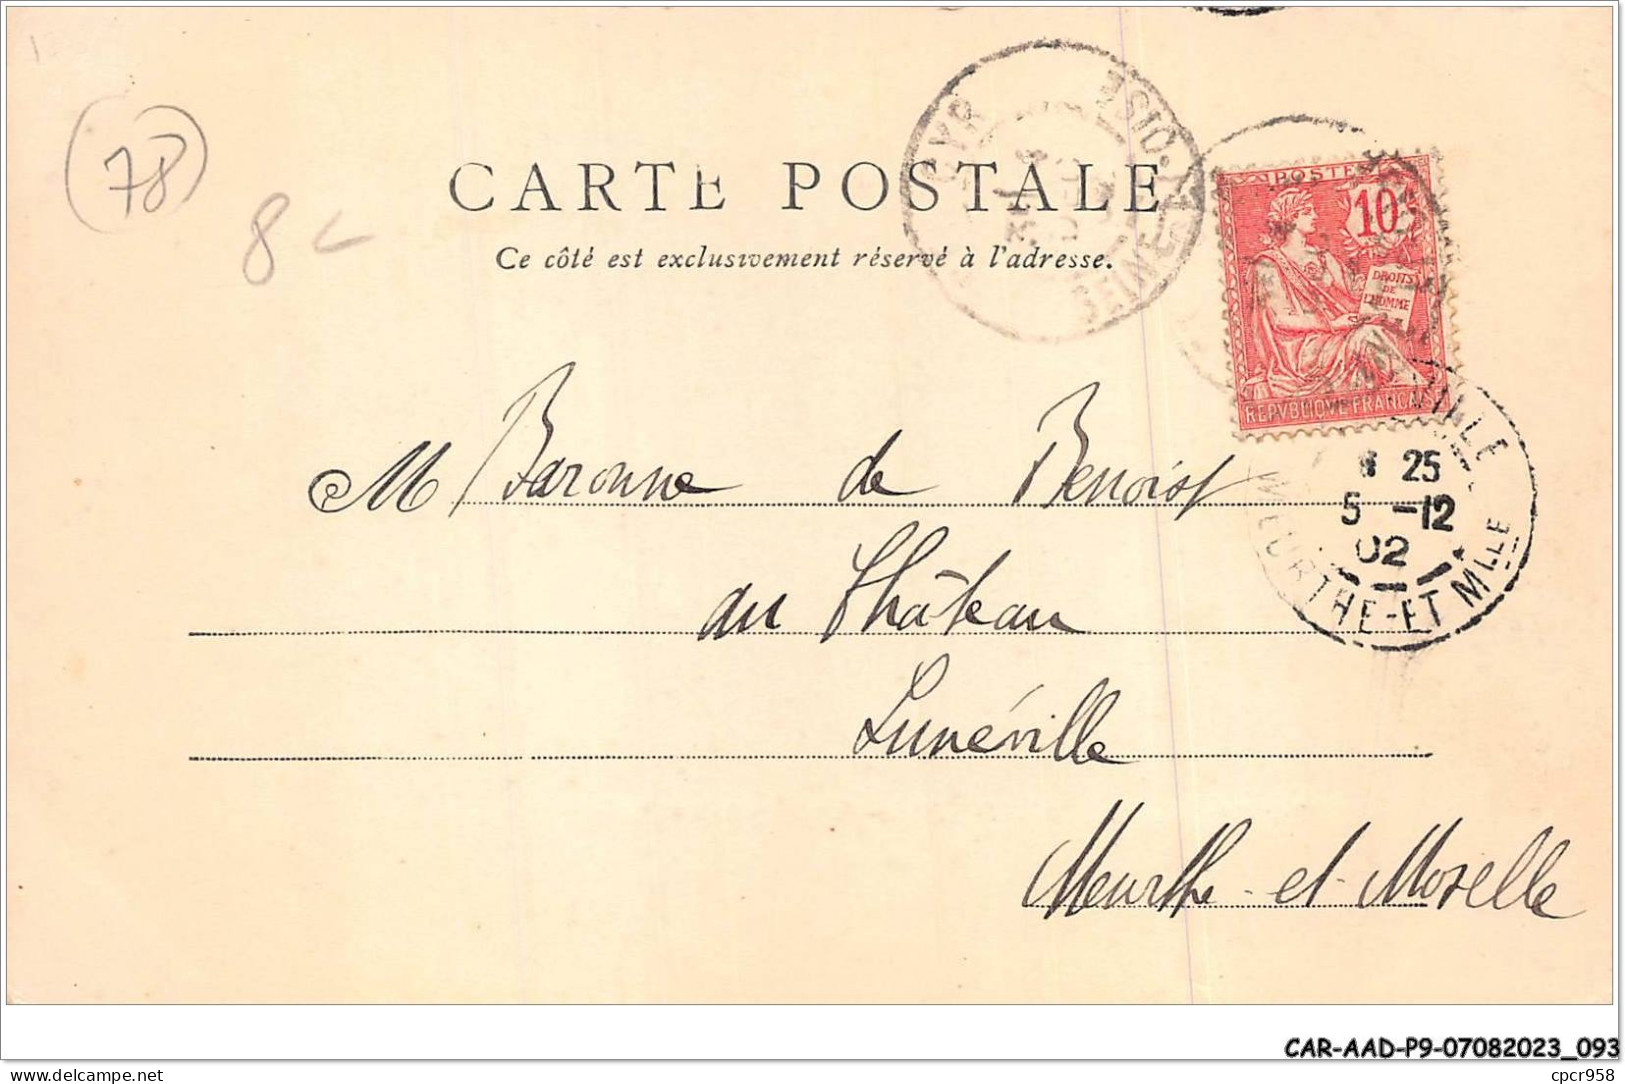 78
8
CARTE POSTALE
Ce côté est exclusivement réservé à l'adresse.
CYR
SEINE-ET-OISE
POSTES
10
DROITS
DE
L'HOMME
REPVBLIQVE FRANCAISE
25
5 -12
02
MEURTHE-ET-MLLE
M Baronne de Benoist
au Château
Lunéville
Meurthe-et-Moselle
CAR-AAD-P9-07082023_093
delcampe.net
cpcr958